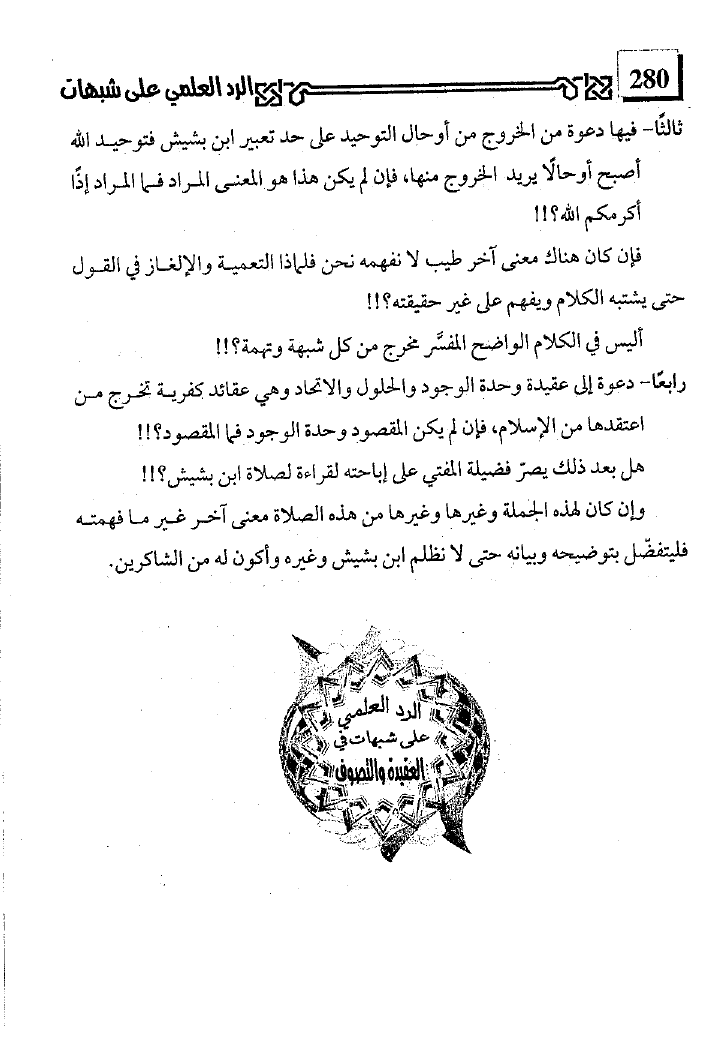 280
الرد العلمي على شبهات
ثالثًا- فيها دعوة من الخروج من أوحال التوحيد على حد تعبير ابن بشيش فتوحيد الله
أصبح أوحالًا يريد الخروج منها، فإن لم يكن هذا هو المعنى المراد فما المراد إذًا
أكرمكم الله؟!!
فإن كان هناك معنى آخر طيب لا نفهمه نحن فلماذا التعمية والإلغاز في القول
حتى يشتبه الكلام ويفهم على غير حقيقته؟!!
أليس في الكلام الواضح المفسَّر مخرج من كل شبهة وتهمة؟!!
رابعًا- دعوة إلى عقيدة وحدة الوجود والحلول والاتحاد وهي عقائد كفرية تخرج من
اعتقدها من الإسلام، فإن لم يكن المقصود وحدة الوجود فما المقصود؟!!
هل بعد ذلك يصرّ فضيلة المفتي على إباحته لقراءة لصلاة ابن بشيش؟!!
وإن كان لهذه الجملة وغيرها وغيرها من هذه الصلاة معنى آخر غير ما فهمته
فليتفضّل بتوضيحه وبيانه حتى لا نظلم ابن بشيش وغيره وأكون له من الشاكرين.
الرد العلمي
على شبهات في
العقيدة والتصوف